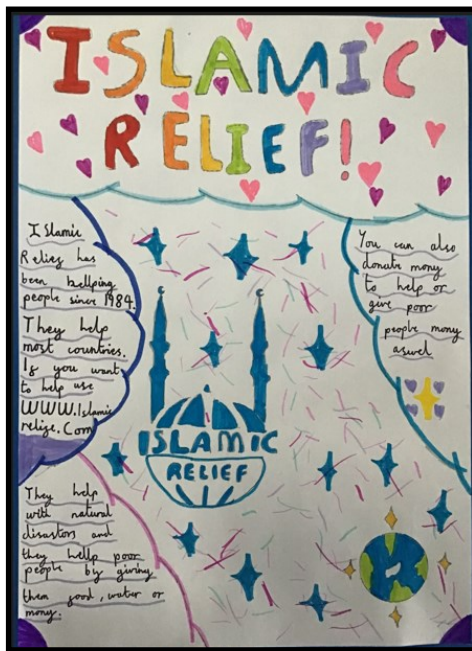 ISLAMIC
RELIEF!
Islamic
Relief has
been hellping
people since 1984.
They help
most countries.
If you want
to help use
WWW.Islamic
relige.Com
They help
with natural
disastors and
they hellp poor
people by giving
them food, water or
mony.
ISLAMIC
RELIEF
You can also
donate mony
to help or
give poor
people mony
aswel